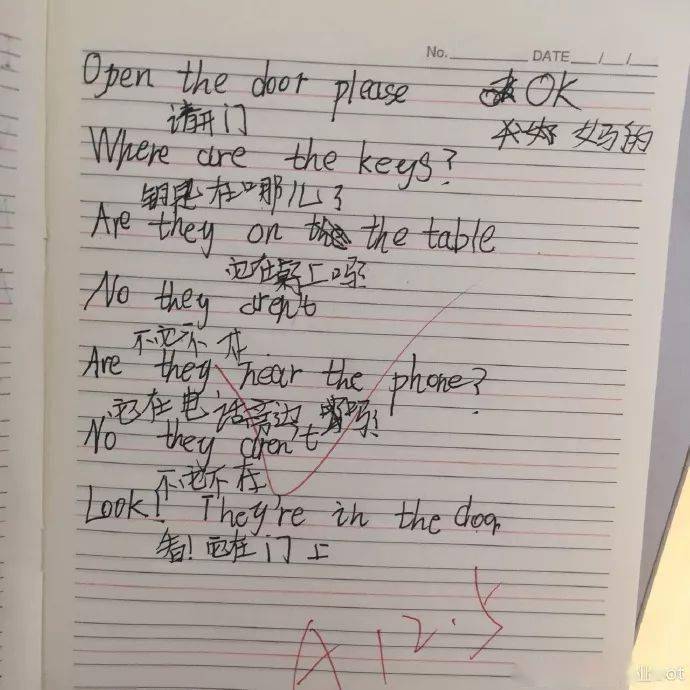 No. DATE / /
Open the door please OK
请开门 妈的
Where are the keys?
钥匙在哪儿?
Are they on the table
它在桌上吗?
No they aren't
不它不在
Are they near the phone?
它在电话旁边吗?
No they aren't
不它不在
Look! They're in the door
看!它在门上
A 12.5